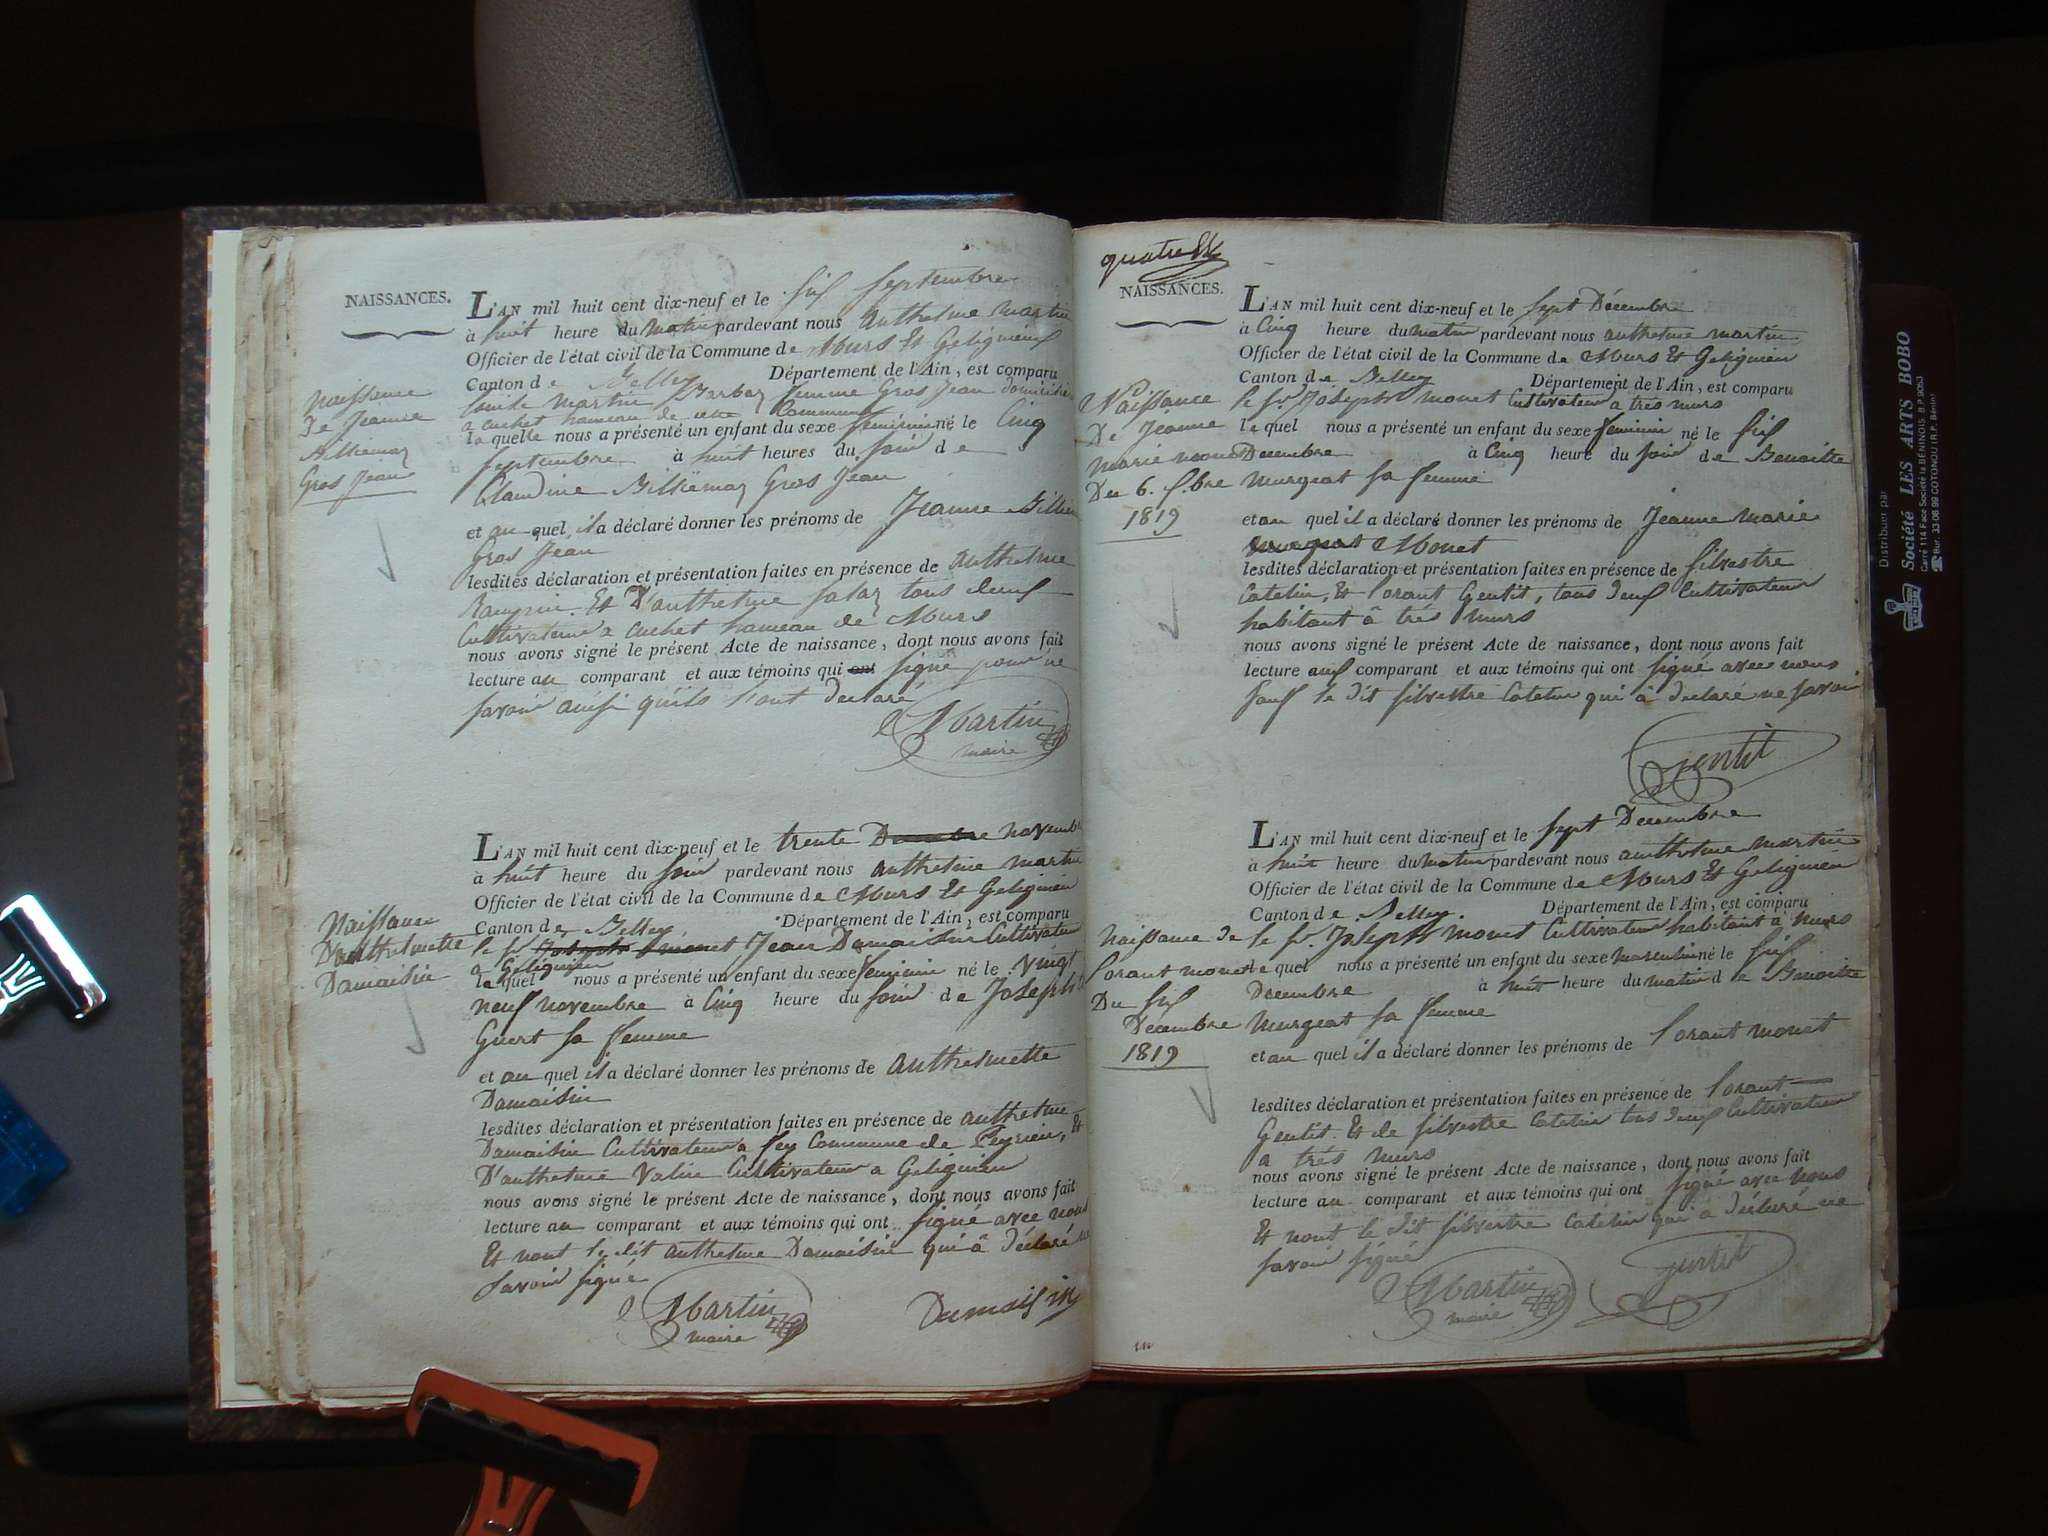 NAISSANCES.
L'AN mil huit cent dix-neuf et le six septembre
à huit heure du matin pardevant nous anthelme martin
Officier de l'état civil de la Commune de Murs Et Gelignieux
Canton de Belley Département de l'Ain, est comparu
Martin Barbaz femme Gros Jean domiciliée
a cuchet hameau de cette Commune
la quelle nous a présenté un enfant du sexe feminin né le Cinq
septembre à huit heures du soir de
Claudine Billiemaz Gros Jean
et au quel il a déclaré donner les prénoms de Jeanne
Gros Jean
lesdites déclaration et présentation faites en présence de anthelme
Et D'anthelme tous deux
Cultivateur a cuchet hameau de Murs
nous avons signé le présent Acte de naissance, dont nous avons fait
lecture au comparant et aux témoins qui ont signé pour ne
savoir ainsi qu'ils l'ont declaré
Martin
maire
Naissance
De Jeanne
Billiemaz
Gros Jean
L'AN mil huit cent dix-neuf et le trente Decembre novembre
à huit heure du soir pardevant nous anthelme martin
Officier de l'état civil de la Commune de Murs Et Gelignieux
Canton de Belley Département de l'Ain, est comparu
le sr Joseph monet Jean Damaisin Cultivateur
a Gelignieu
le quel nous a présenté un enfant du sexe feminin né le Vingt
neuf novembre à Cinq heure du soir de Josephte
Guert sa femme
et au quel il a déclaré donner les prénoms de anthelmette
Damaisin
lesdites déclaration et présentation faites en présence de anthelme
Damaisin Cultivateur a fey Commune de Peyrieu, Et
D'anthelme Valin Cultivateur a Gelignieu
nous avons signé le présent Acte de naissance, dont nous avons fait
lecture au comparant et aux témoins qui ont signé avec nous
Et nont le dit anthelme Damaisin qui à déclaré ne
savoir signé
Martin
maire
Damaisin
Naissance
D'anthelmette
Damaisin
quatre
NAISSANCES.
L'AN mil huit cent dix-neuf et le sept Décembre
à Cinq heure du matin pardevant nous anthelme martin
Officier de l'état civil de la Commune de Murs Et Geligneu
Canton de Belley Département de l'Ain, est comparu
le sr Joseph monet Cultivateur a tres murs
le quel nous a présenté un enfant du sexe feminin né le six
Decembre à Cinq heure du soir de Benoitte
Murgeat sa femme
et au quel il a déclaré donner les prénoms de Jeanne marie
murgeat Monet
lesdites déclaration et présentation faites en présence de silvestre
Catelin, Et lorant Gentit, tous deux Cultivateur
habitant à trés murs
nous avons signé le présent Acte de naissance, dont nous avons fait
lecture aux comparant et aux témoins qui ont signé avec nous
sauf le dit silvestre Catelin qui à declaré ne savoir
gentit
Naissance
De Jeanne
marie monet
Du 6. Xbre
1819
L'AN mil huit cent dix-neuf et le sept Decembre
à huit heure du matin pardevant nous anthelme martin
Officier de l'état civil de la Commune de Murs Et Geligneu
Canton de Belley. Département de l'Ain, est comparu
le sr. Joseph monet Cultivateur habitant à murs
le quel nous a présenté un enfant du sexe masculin né le six
Decembre à huit heure du matin de Benoitte
Murgeat sa femme
et au quel il a déclaré donner les prénoms de lorant monet
lesdites déclaration et présentation faites en présence de lorant
Gentit. Et de silvestre Catelin tous deux Cultivateur
a trés murs
nous avons signé le présent Acte de naissance, dont nous avons fait
lecture au comparant et aux témoins qui ont signé avec nous
Et nont le dit silvestre Catelin qui à déclaré ne
savoir signé
Martin
maire
gentit
Naissance de
lorant monet
Du six
Decembre
1819
Distribuer par
Société LES ARTS BOBO
Carré 114 Face Société la BÉNINOIS B.P. 9053
☎ Bur. 33-06-99 COTONOU (R.P. Bénin)